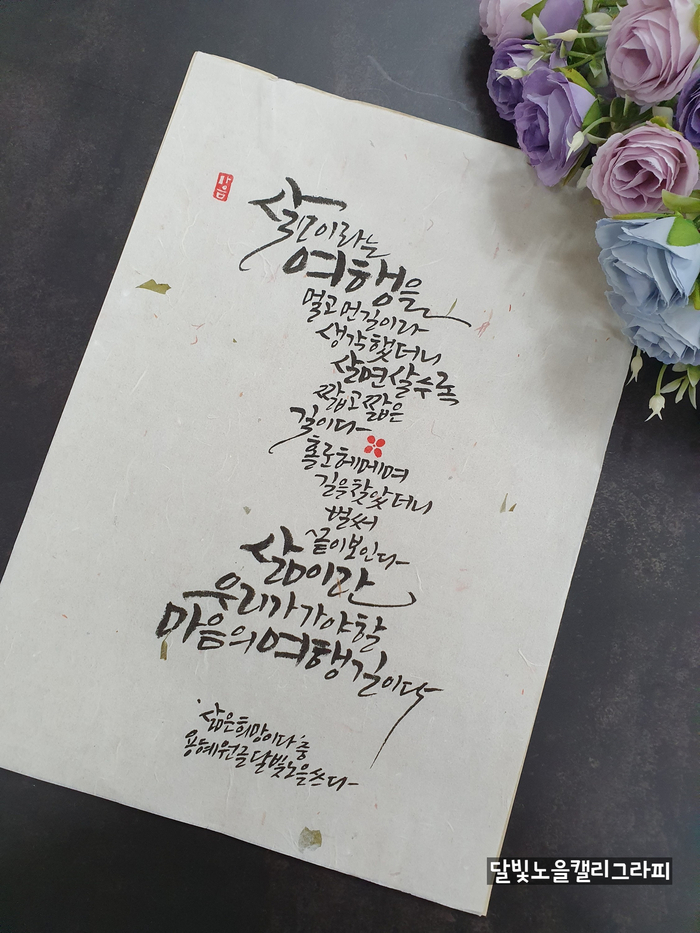 삶이라는
여행을
멀고 먼 길이라
생각했더니
살면 살수록
짧고 짧은
길이다
홀로 헤메며
길을 찾았더니
벌써
끝이 보인다
삶이란
우리가 가야할
마음의 여행길이다
'삶은 희망이다' 중
용혜원 글 달빛노을 쓰다
달빛노을캘리그라피